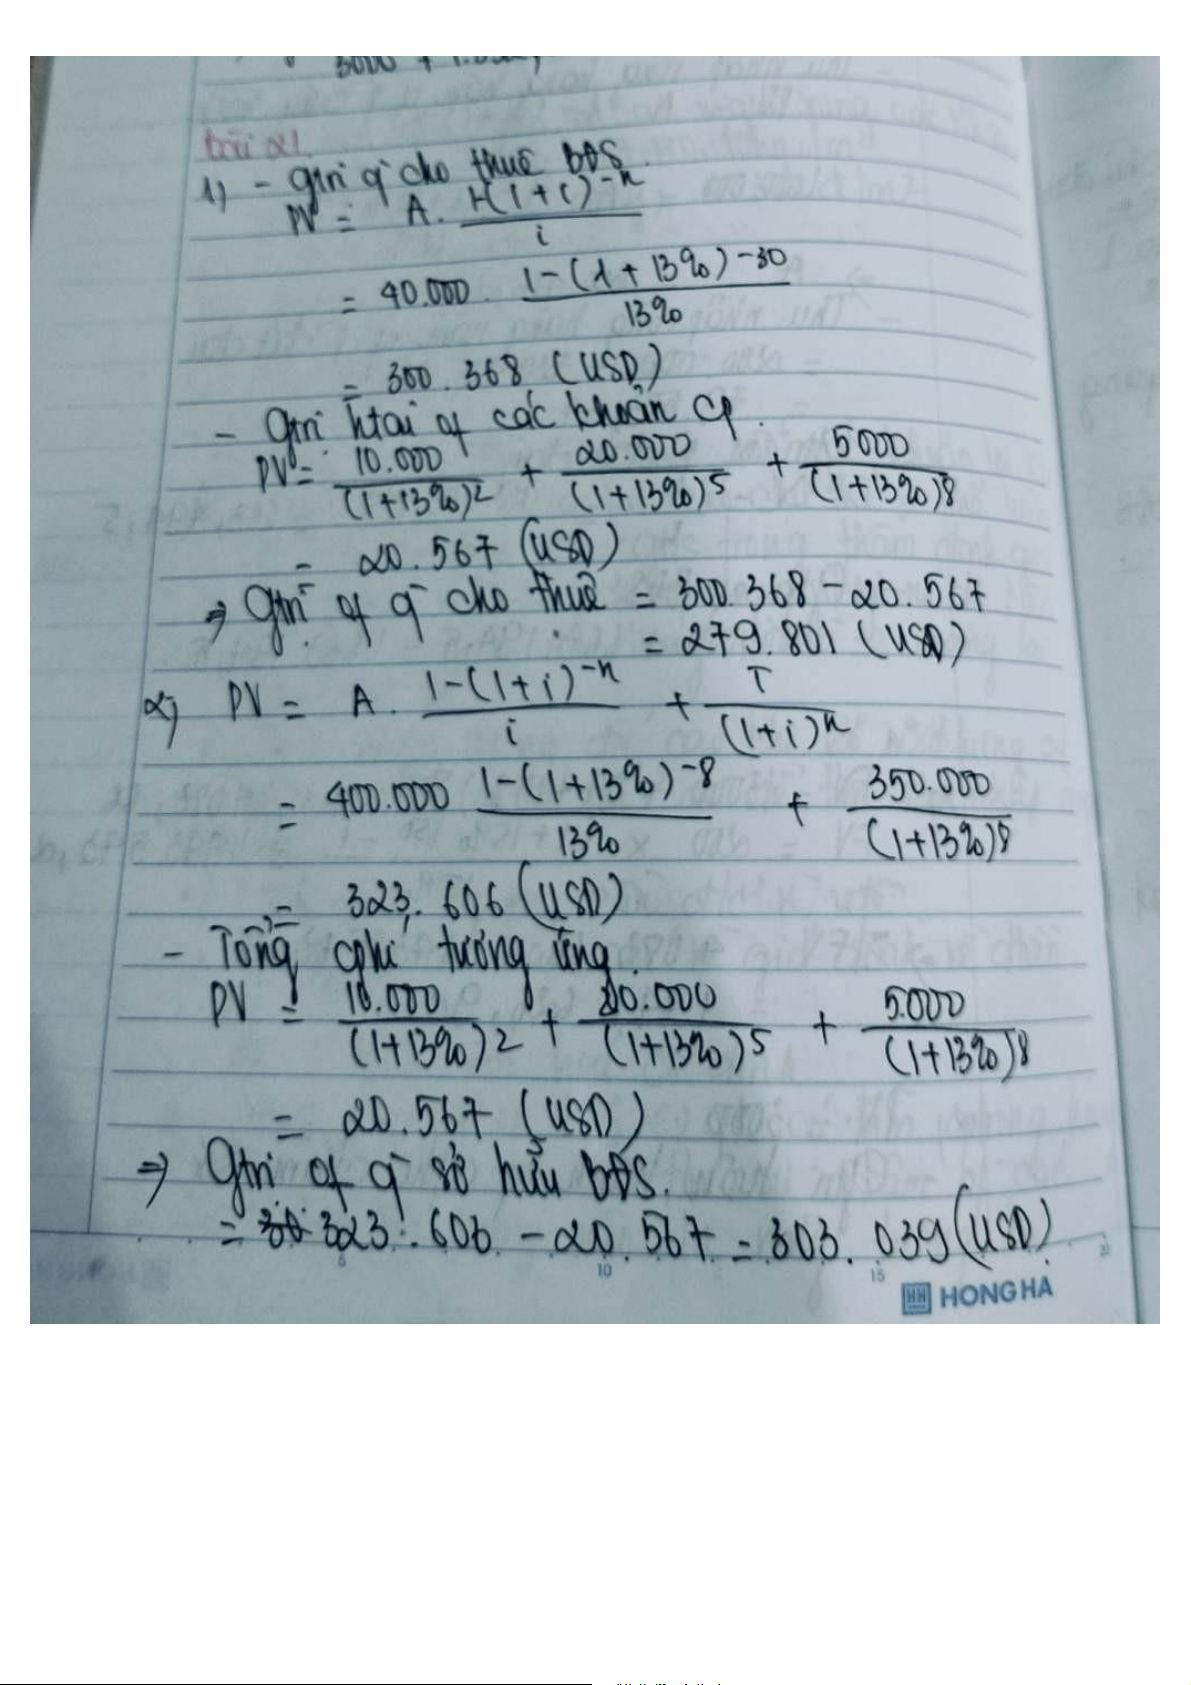 3000
Bài 21
1) - Gtrị q̀ cho thuê BĐS.
PV = A. 1-(1+i)^-n / i
= 40.000. 1-(1+13%)^-30 / 13%
= 300.368 (USD)
- Gtrị htại of các khoản CP.
PV = 10.000/(1+13%)^2 + 20.000/(1+13%)^5 + 5000/(1+13%)^8
= 20.567 (USD)
⇒ Gtrị of q̀ cho thuê = 300.368 - 20.567
= 279.801 (USD)
2) PV = A. 1-(1+i)^-n / i + T/(1+i)^n
= 400.000 1-(1+13%)^-8 / 13% + 350.000/(1+13%)^8
= 323.606 (USD)
- Tổng cphí tương ứng.
PV = 10.000/(1+13%)^2 + 20.000/(1+13%)^5 + 5.000/(1+13%)^8
= 20.567 (USD)
⇒ Gtrị of q̀ sở hữu BĐS.
= 323.606 - 20.567 = 303.039 (USD)
5 10 15 20
HH HONG HA